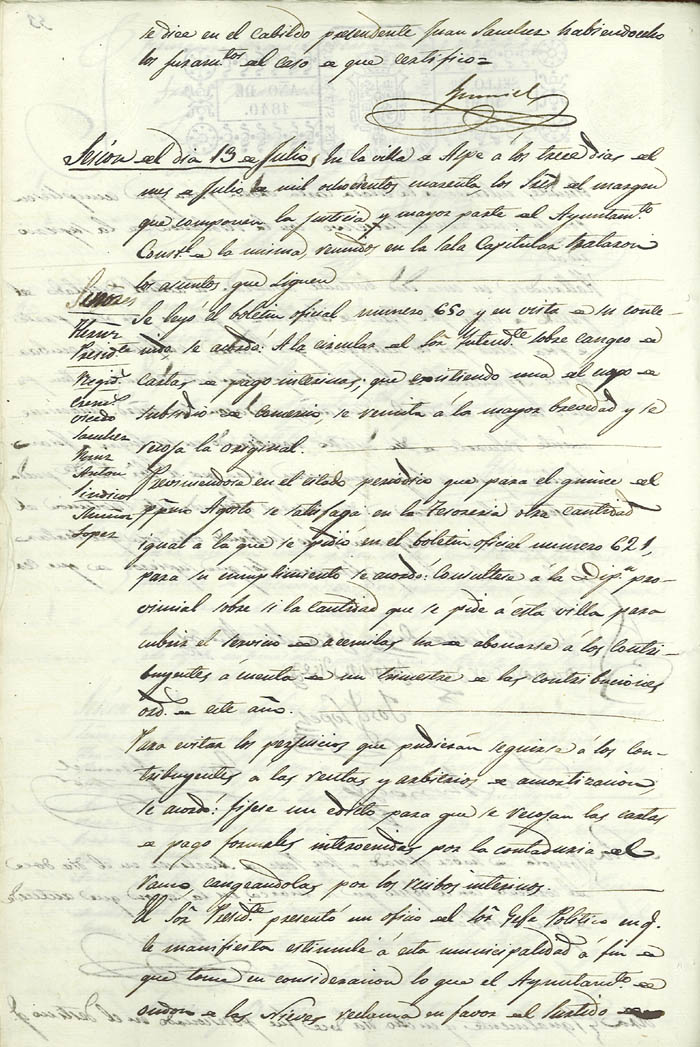 se dice en el Cabildo precedente Juan Sanchez habiendoceles
los juramtos al caso de que certifico=
Sesion del dia 13 de Julio, En la villa de Aspe á los trece dias del
mes de Julio de mil ochocientos cuarenta los Sres del margen
que componen la Justicia y mayor parte del Ayuntamto
Constl de la misma, reunidos en la Sala Capitular trataron
los asuntos que siguen
Señores
Presidte
Regidr
Oviedo
Sanchez
Anton
Sindicos
Muñoz
Lopez
Se leyó el boletin oficial numero 650 y en vista de su conte-
nido se acordó: A la circular del Sor Intendte sobre cange de
cartas de pago interinas; que existiendo una del cupo de
subsidio de Comercio, se remita á la mayor brevedad y se
recoja la original.
Previniendose en el estado periodico que para el quince del
ppmo Agosto se satisfaga en la Tesoreria otra cantidad
igual á la que se pidio en el boletin oficial numero 621,
para su cumplimiento se acordó: Consultese á la Dipn pro-
vincial sobre si la cantidad que se pide á esta villa para
cubrir el servicio de acemilas ha de abonarse á los Contri-
buyentes á cuenta de un trimestre de las contribuciones
ord. de este año.
Para evitar los perjuicios que pudieran seguirse á los con-
tribuyentes a las rentas y arbitrios de amortizacion,
se acordó: fijese un edicto para que se recojan las cartas
de pago formales intervenidas por la contaduria del
ramo, cangeandolas por los recibos interinos.
El Sor Presidte presentó un oficio del Sor Gefe Politico en q.
le manifiesta estimule á esta municipalidad á fin de
que tome en consideracion lo que el Ayuntamto de
ondon de las Nieves reclama en favor del Partido de